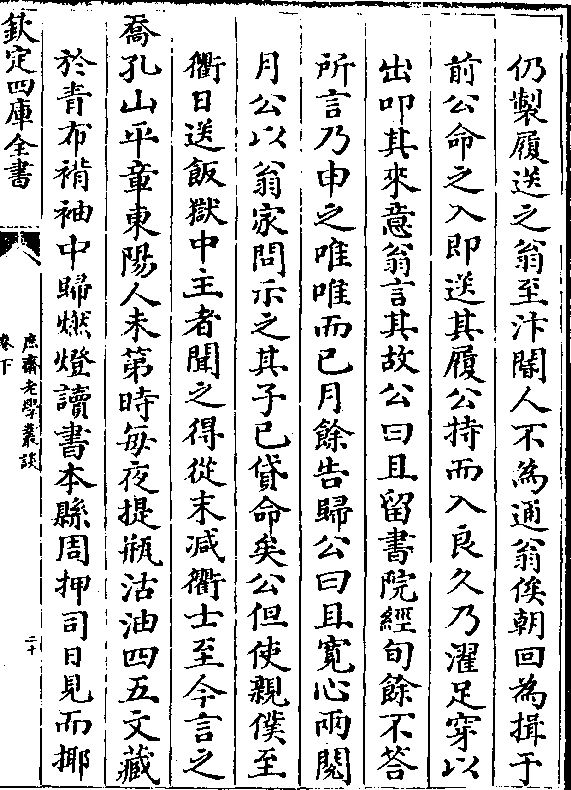 仍製履送之翁至汴閽人不為通翁俟朝回為揖于
前公命之入即送其履公持而入良久乃濯足穿以
出叩其來意翁言其故公曰且留書院經旬餘不答
所言乃申之唯唯而已月餘告歸公曰且寛心兩閲
月公以翁家問示之其子已貸命矣公但使親僕至
衢日送飯獄中主者聞之得從末减衢士至今言之
喬孔山平章東陽人未第時每夜提瓶沽油四五文藏
於青布褙袖中歸燃燈讀書本縣周押司日見而揶
欽定四庫全書
庶齋老學叢談
卷下
二十